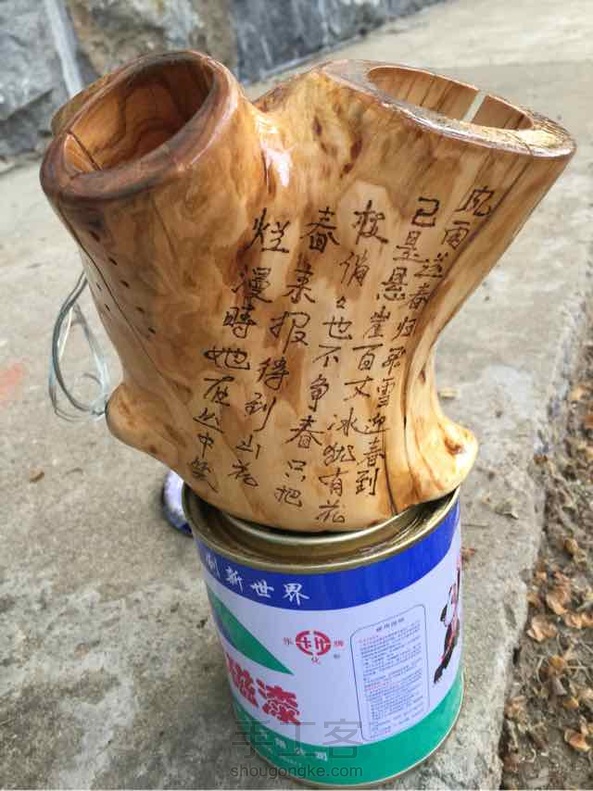 风雨送春归飞雪迎春到
已昰悬崖百丈冰犹有花
枝俏々也不争春只把
春来报待到山花
烂漫時她在丛中笑
创新世界
牌
化
磁漆
公司
手工客
shougongke.com